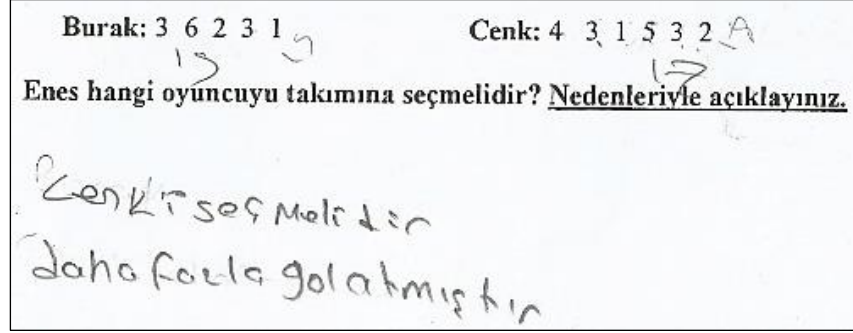 Burak: 3 6 2 3 1
Cenk: 4 3 1 5 3 2 A
Enes hangi oyuncuyu takımına seçmelidir? Nedenleriyle açıklayınız.
Cenk'i seçmelidir
daha fazla gol atmıştır